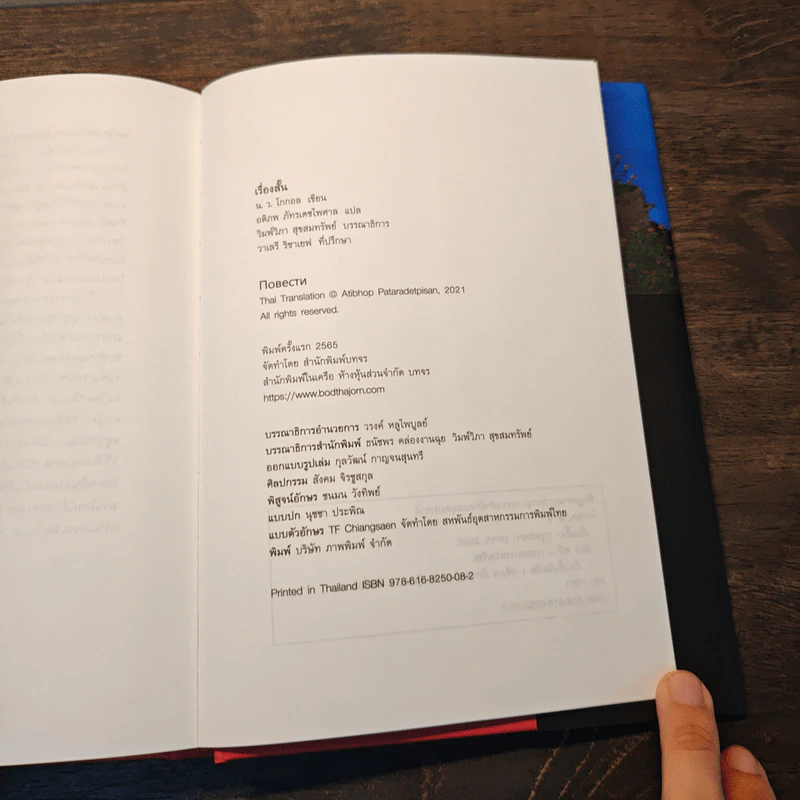 เรื่องสั้น
น. ว. โกกอล เขียน
อติภพ ภัทรเดชไพศาล แปล
วิมพ์วิภา สุขสมทรัพย์ บรรณาธิการ
วาเลรี ริซาเยฟ ที่ปรึกษา
Повести
Thai Translation © Atibhop Pataradetpisan, 2021
All rights reserved.
พิมพ์ครั้งแรก 2565
จัดทำโดย สำนักพิมพ์บทจร
สำนักพิมพ์ในเครือ ห้างหุ้นส่วนจำกัด บทจร
https://www.bodthajorn.com
บรรณาธิการอำนวยการ วรงค์ หลูไพบูลย์
บรรณาธิการสำนักพิมพ์ ธนัชพร คล่องงานฉุย วิมพ์วิภา สุขสมทรัพย์
ออกแบบรูปเล่ม กุลวัฒน์ กาญจนสุนทรี
ศิลปกรรม สังคม จิรชูสกุล
พิสูจน์อักษร ชนมน วังทิพย์
แบบปก นุชชา ประพิณ
แบบตัวอักษร TF Chiangsaen จัดทำโดย สหพันธ์อุตสาหกรรมการพิมพ์ไทย
พิมพ์ บริษัท ภาพพิมพ์ จำกัด
Printed in Thailand ISBN 978-616-8250-08-2